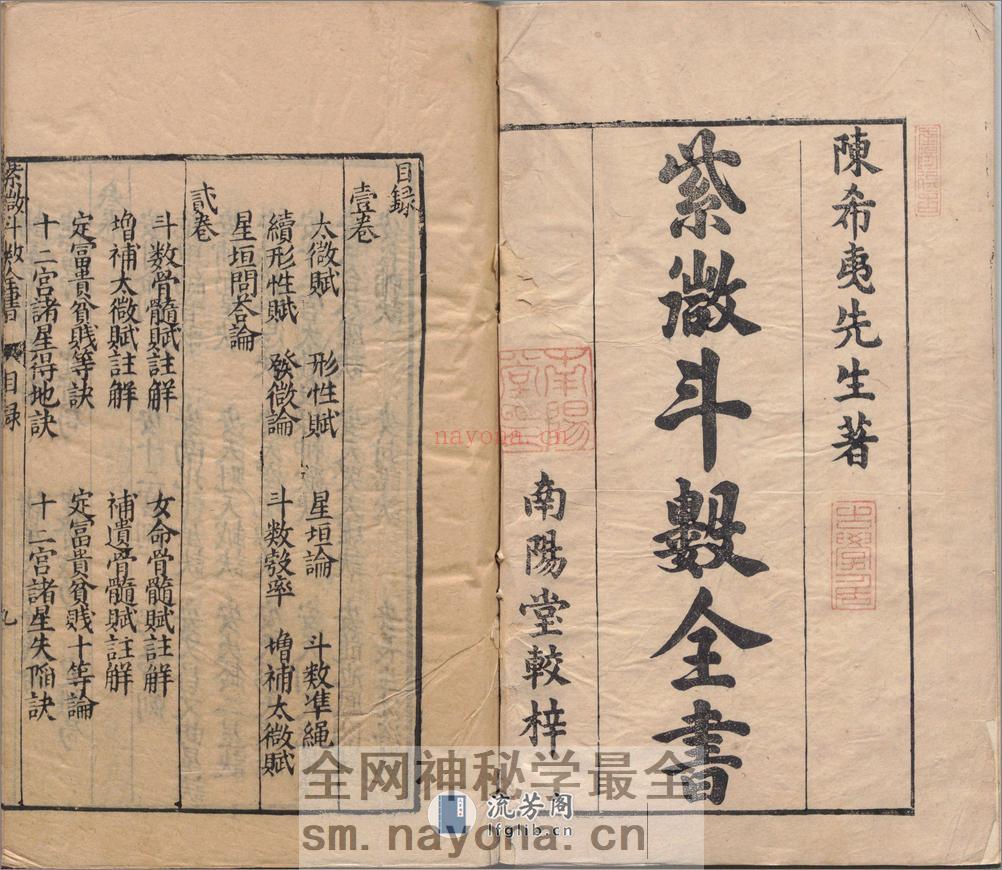 陳希夷先生著
紫微斗數全書
南陽堂較梓
南陽
目錄
壹卷
太微賦 形性賦 星垣論 斗数準繩
續形性賦 發微論 斗数彀率 增補太微賦
星垣問答論
貳卷
斗数骨髓賦註解 女命骨髓賦註解
增補太微賦註解 補遺骨髓賦註解
定富貴貧賤等訣 定富貴貧贱十等論
十二宮諸星得地訣 十二宮諸星失陷訣
紫微斗数全書 目录 九
nayona.cn
全网神秘学最全
流芳阁
lfglib.cn
sm.nayona.cn